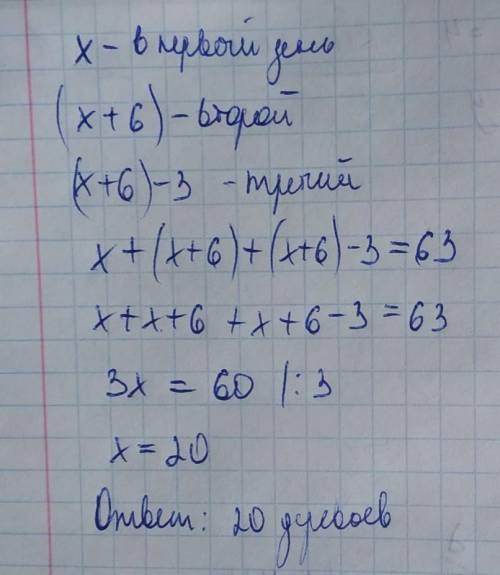 x - в первый день
(x+6) - второй
(x+6)-3 - третий
x+(x+6)+(x+6)-3=63
x+x+6 +x+6-3=63
3x = 60 |:3
x=20
Ответ: 20